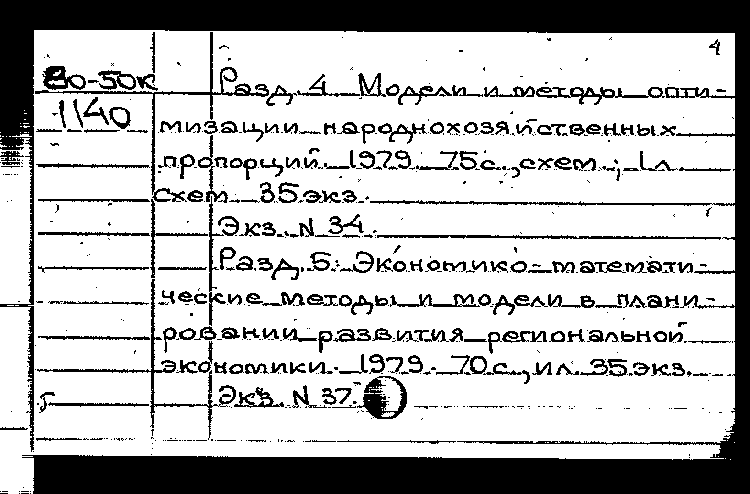 4
80-50к Разд. 4. Модели и методы опти-
1140 мизации народнохозяйственных
пропорций. 1979. 75с., схем.; 1л.
схем. 35экз.
Экз. N 34.
Разд. 5. Экономико-математи-
ческие методы и модели в плани-
ровании развития региональной
экономики. 1979. 70с., ил. 35экз.
Экз. N 37.